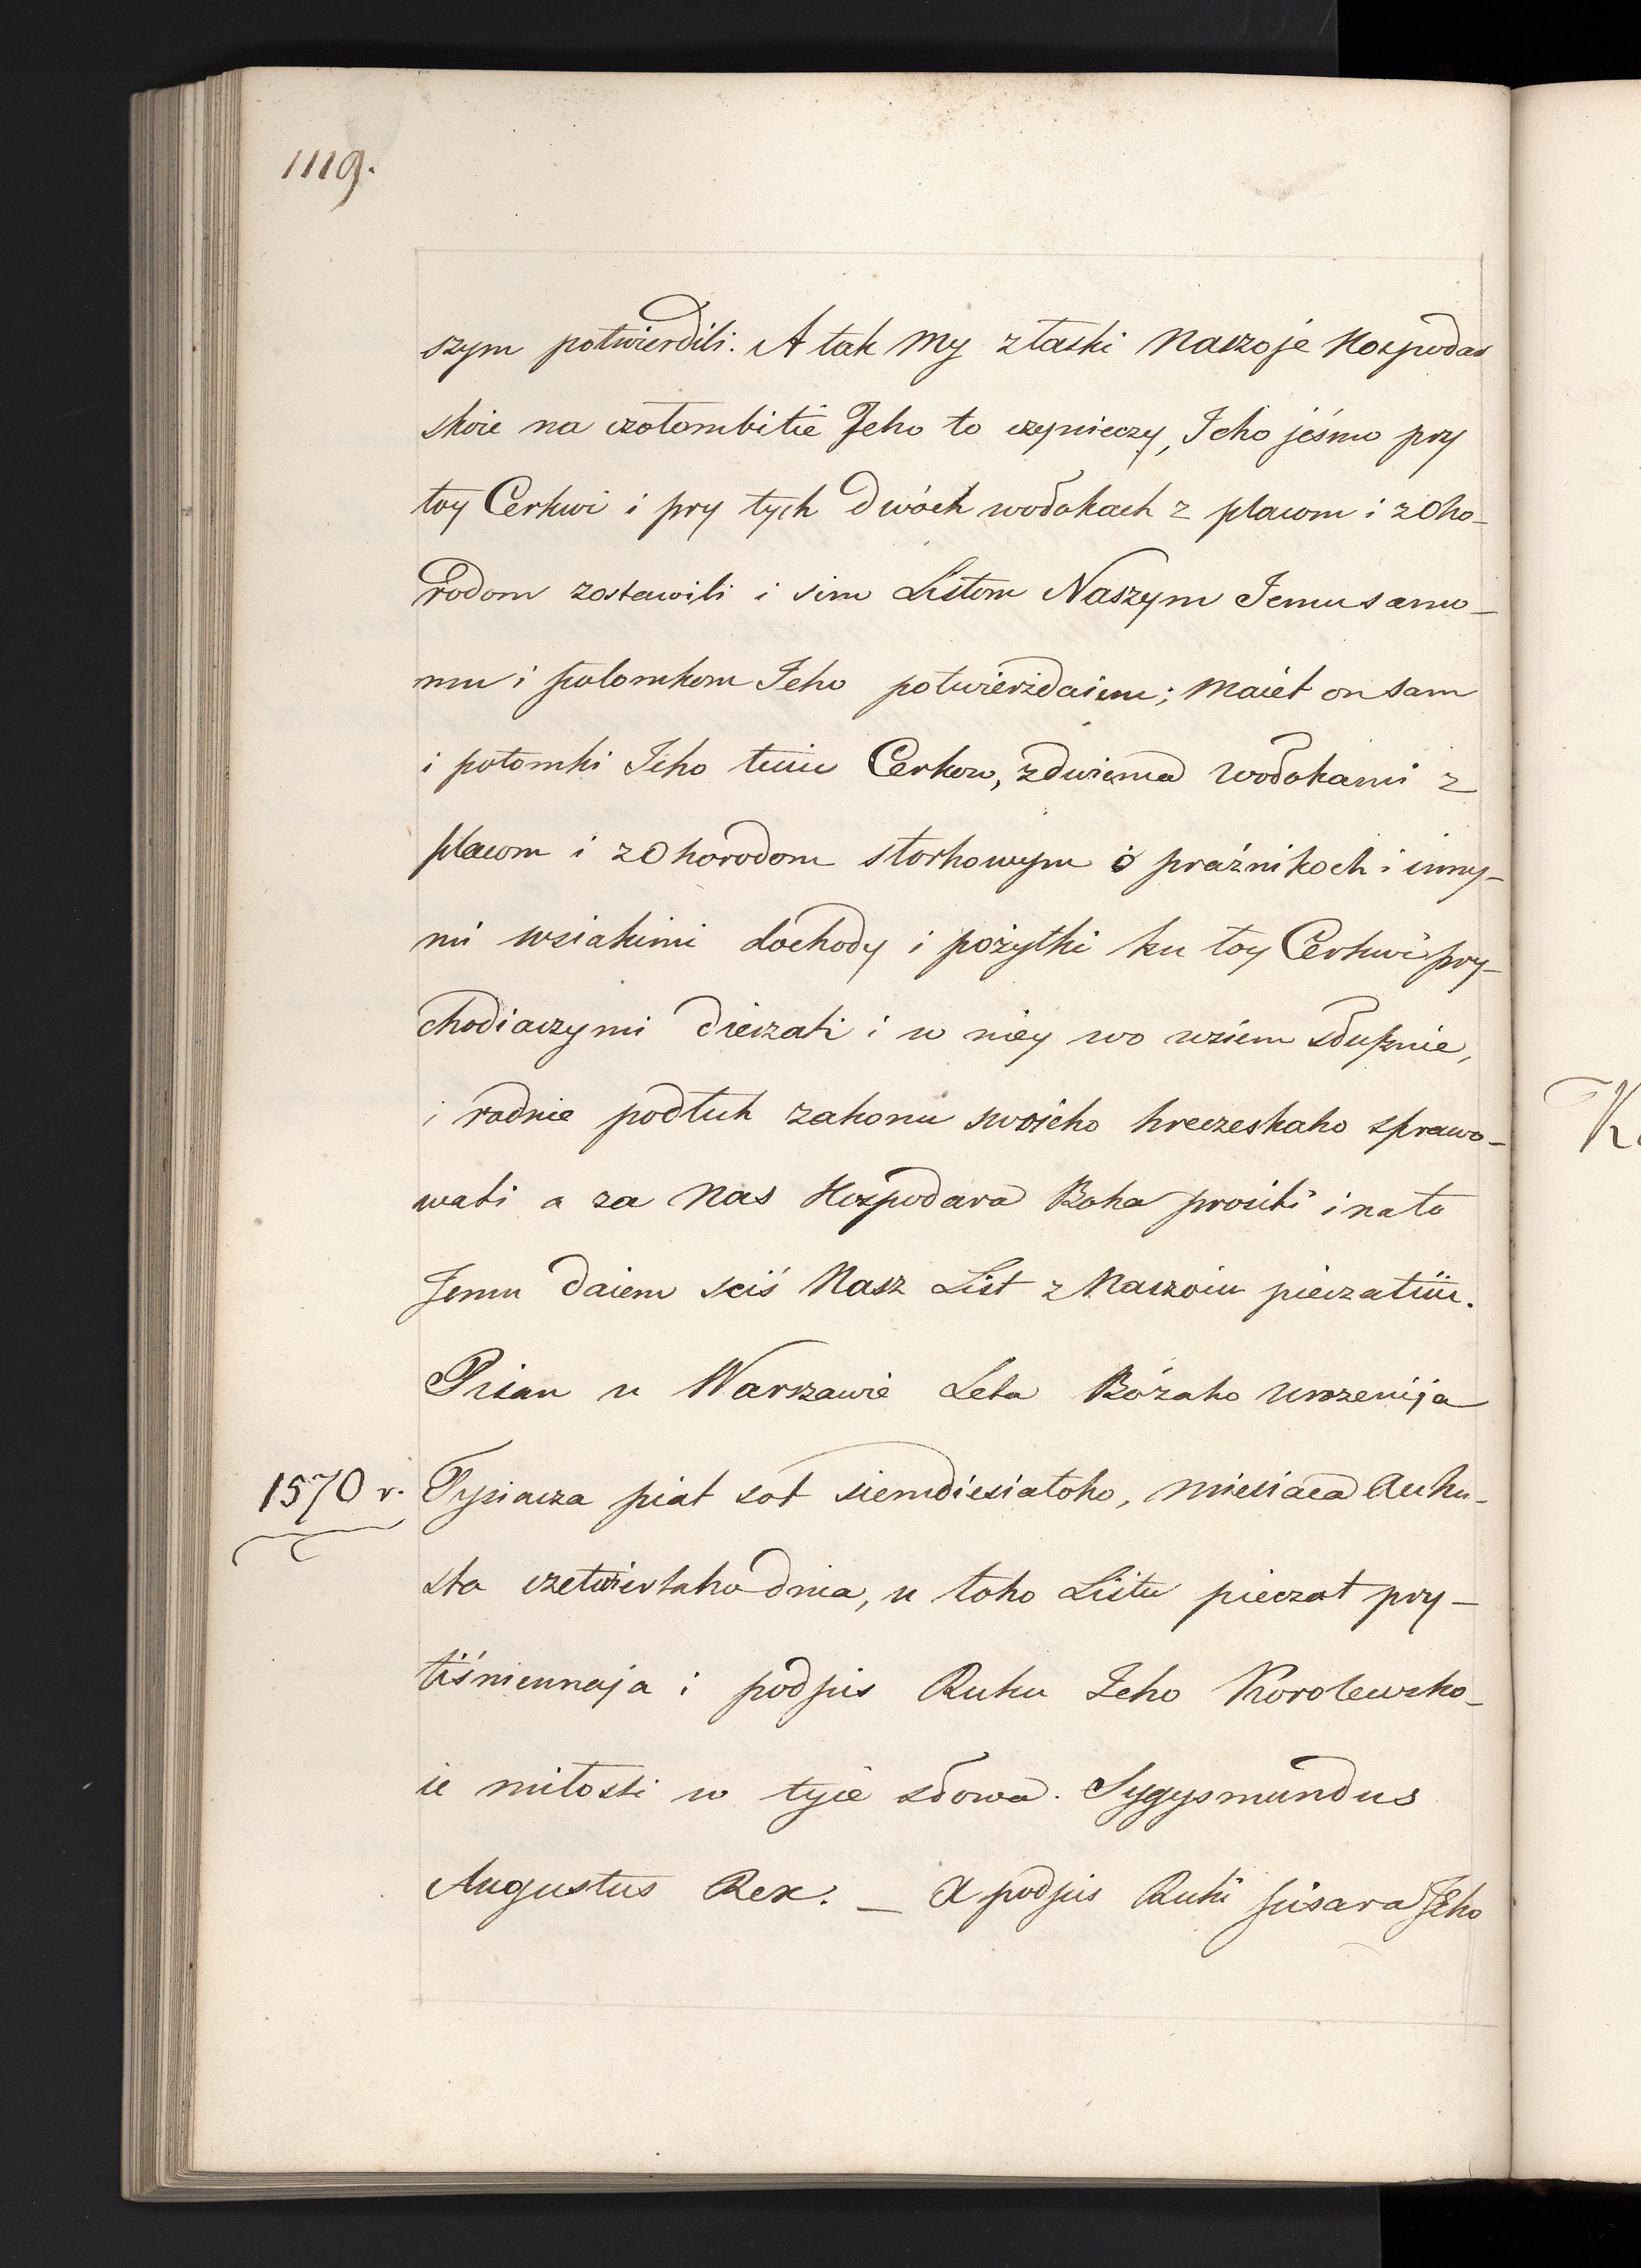 1119.
szym potwierdili. A tak My złaski Naszoje Hospodar
skoie na czołombitie Jeho to czynieczy, Jeho jeśmo pry
toy Cerkwi i pry tych dwóch wołokach z placom i z Oho-
rodom zostawili i sim Listom Naszym Jemu samo-
mu i potomkom Jeho potwierżdaiem; maiet on sam
i potomki Jeho tuiu Cerkow, zdwiema wołokami z
placom i z Ohorodom storhowym o praźnikoch i inny-
mi wsiakimi dochody i pożytki ku toy Cerkwi pry-
chodiaczymi dierzati i w niey wo wsiem słusznie,
i radnie podłuh zakonu swoieho hreczeskaho sprawo-
wati a za Nas Hospodara Boha prositi i na to
Jemu daiem seiś Nasz List z Naszoiu pieczatiiu.
Pisan u Warszawie Leta Bóżaho urożenija
1570 r. Tysiacza piat sot siemdiesiatoho, miesiaca Auhu-
sta czetwiertaho dnia, u toho Listu pieczat pry-
tiśniennaja i podpis Ruku Jeho Korolewsko-
ie miłosti w tyie słowa. Sygysmundus
Augustus Rex. _ A podpis Ruki pisara Jeho
K